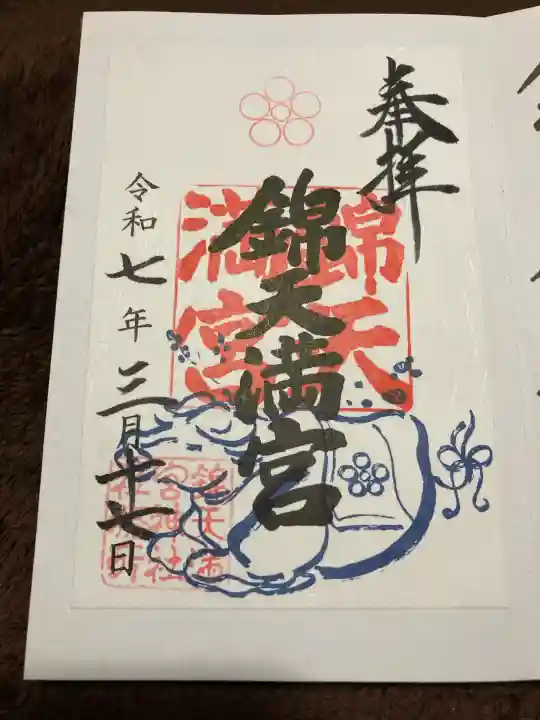 奉拝
錦天
満宮
錦天満宮
令和七年三月十七日
錦天満
宮神社